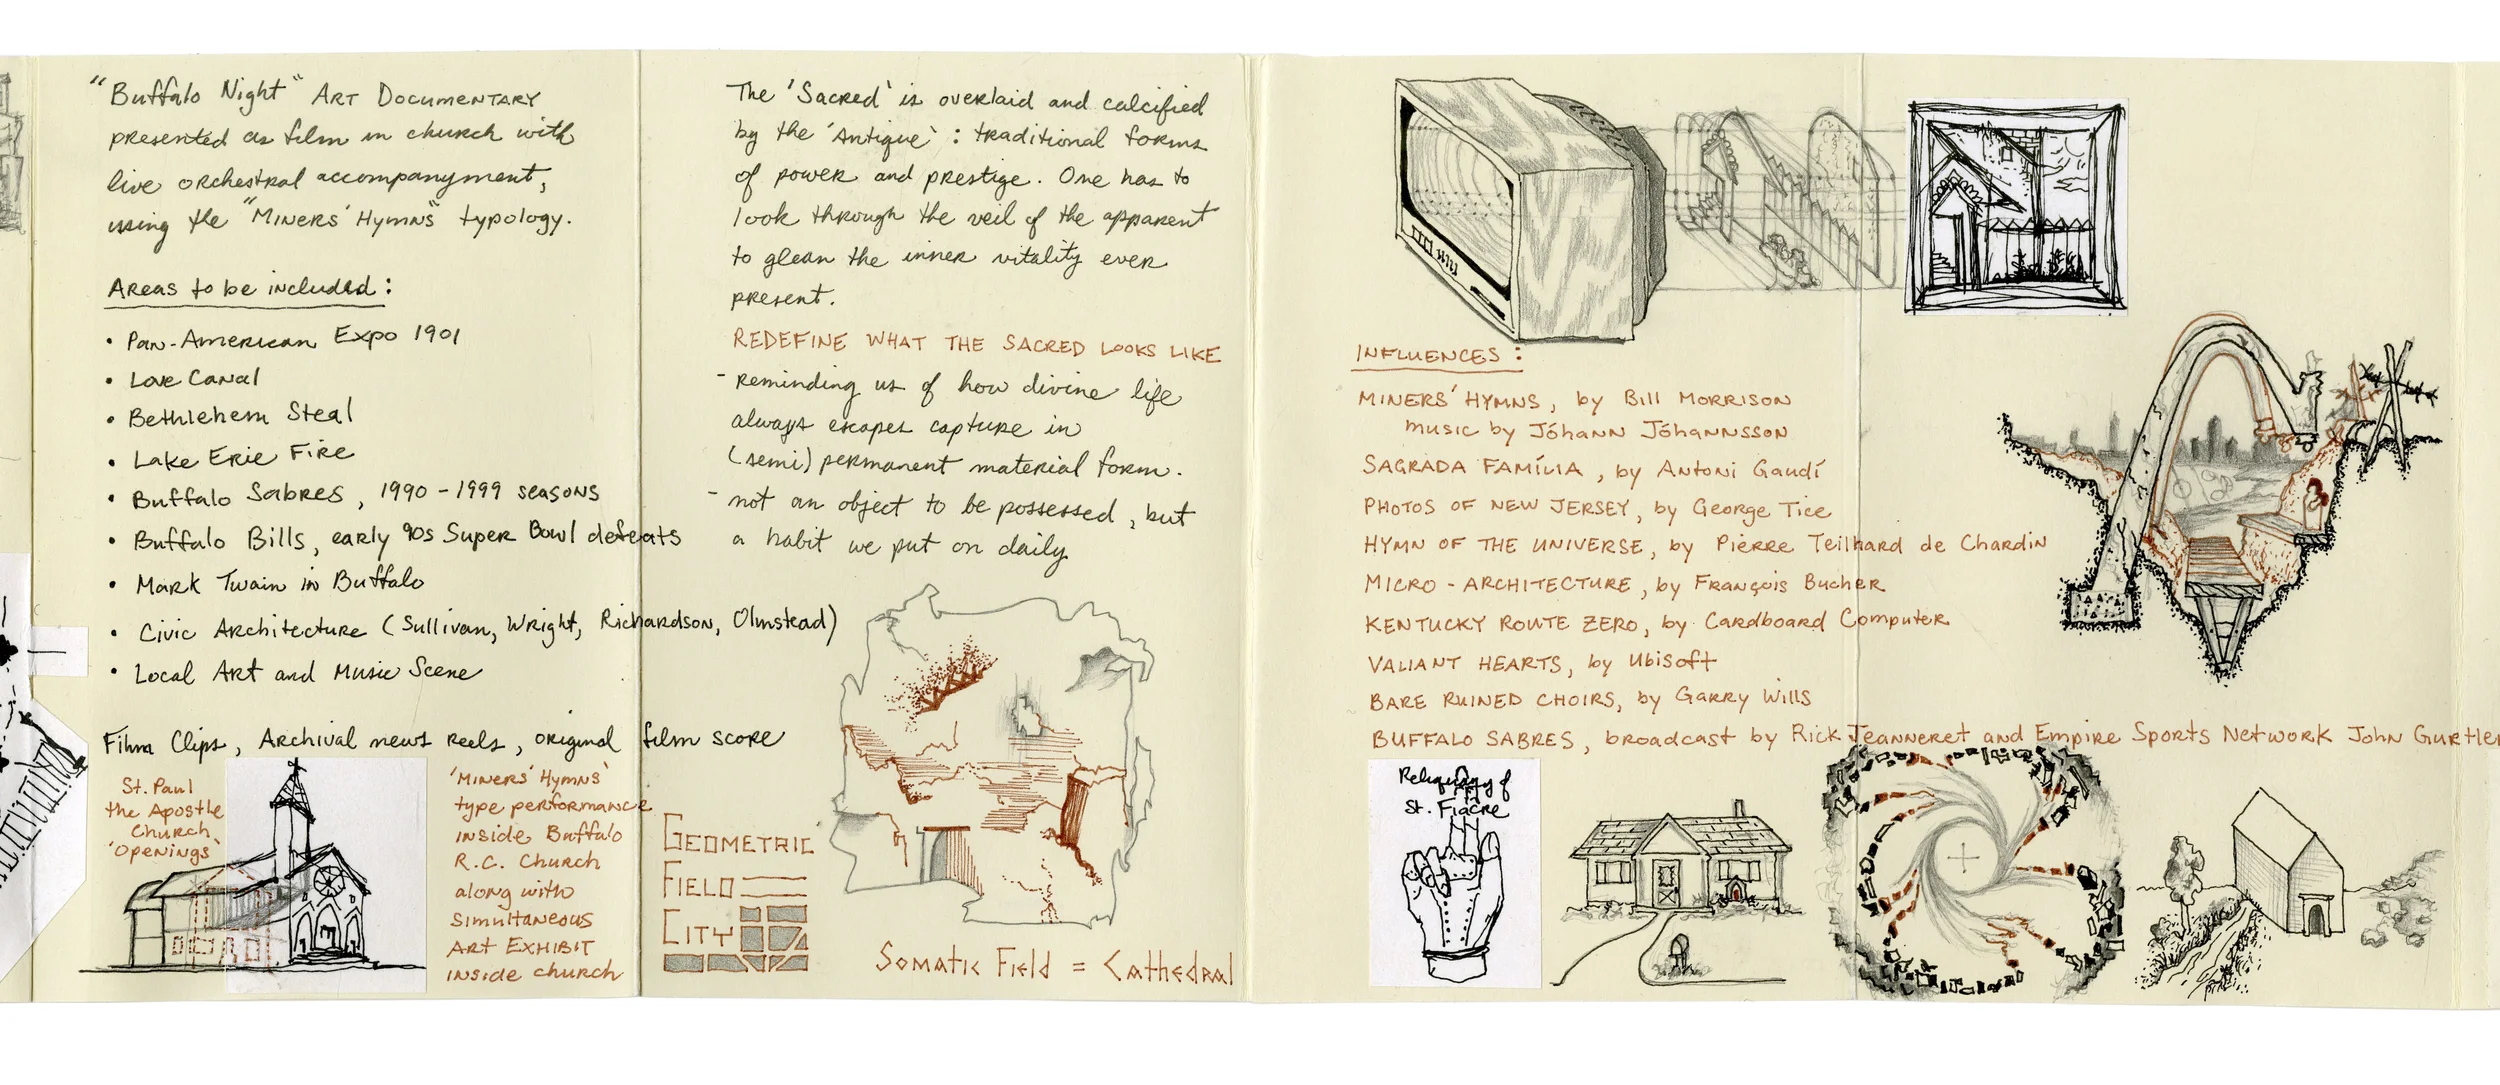 "Buffalo Night" Art Documentary
presented as film in church with
live orchestral accompanyment,
using the "Miners' Hymns" typology.
Areas to be included:
• Pan-American Expo 1901
• Love Canal
• Bethlehem Steal
• Lake Erie Fire
• Buffalo Sabres, 1990-1999 seasons
• Buffalo Bills, early 90s Super Bowl defeats
• Mark Twain in Buffalo
• Civic Architecture (Sullivan, Wright, Richardson, Olmstead)
• Local Art and Music Scene
Film Clips, Archival news reels, original film score
St. Paul
the Apostle
Church
'Openings'
'Miners' Hymns'
type performance
inside Buffalo
R.C. Church
along with
simultaneous
Art Exhibit
inside church
The 'Sacred' is overlaid and calcified
by the 'Antique': traditional forms
of power and prestige. One has to
look through the veil of the apparent
to glean the inner vitality ever
present.
REDEFINE WHAT THE SACRED LOOKS LIKE
- reminding us of how divine life
always escapes capture in
(semi) permanent material form.
- not an object to be possessed, but
a habit we put on daily
GEOMETRIC
FIELD
CITY
Somatic Field = Cathedral
INFLUENCES:
MINERS' HYMNS, by Bill Morrison
music by Jóhann Jóhannsson
SAGRADA FAMÍLIA, by Antoni Gaudí
PHOTOS OF NEW JERSEY, by George Tice
HYMN OF THE UNIVERSE, by Pierre Teilhard de Chardin
MICRO-ARCHITECTURE, by François Bucher
KENTUCKY ROUTE ZERO, by Cardboard Computer
VALIANT HEARTS, by Ubisoft
BARE RUINED CHOIRS, by Garry Wills
BUFFALO SABRES, broadcast by Rick Jeanneret and Empire Sports Network John Gurtler
Reliquary of
St. Fiacre